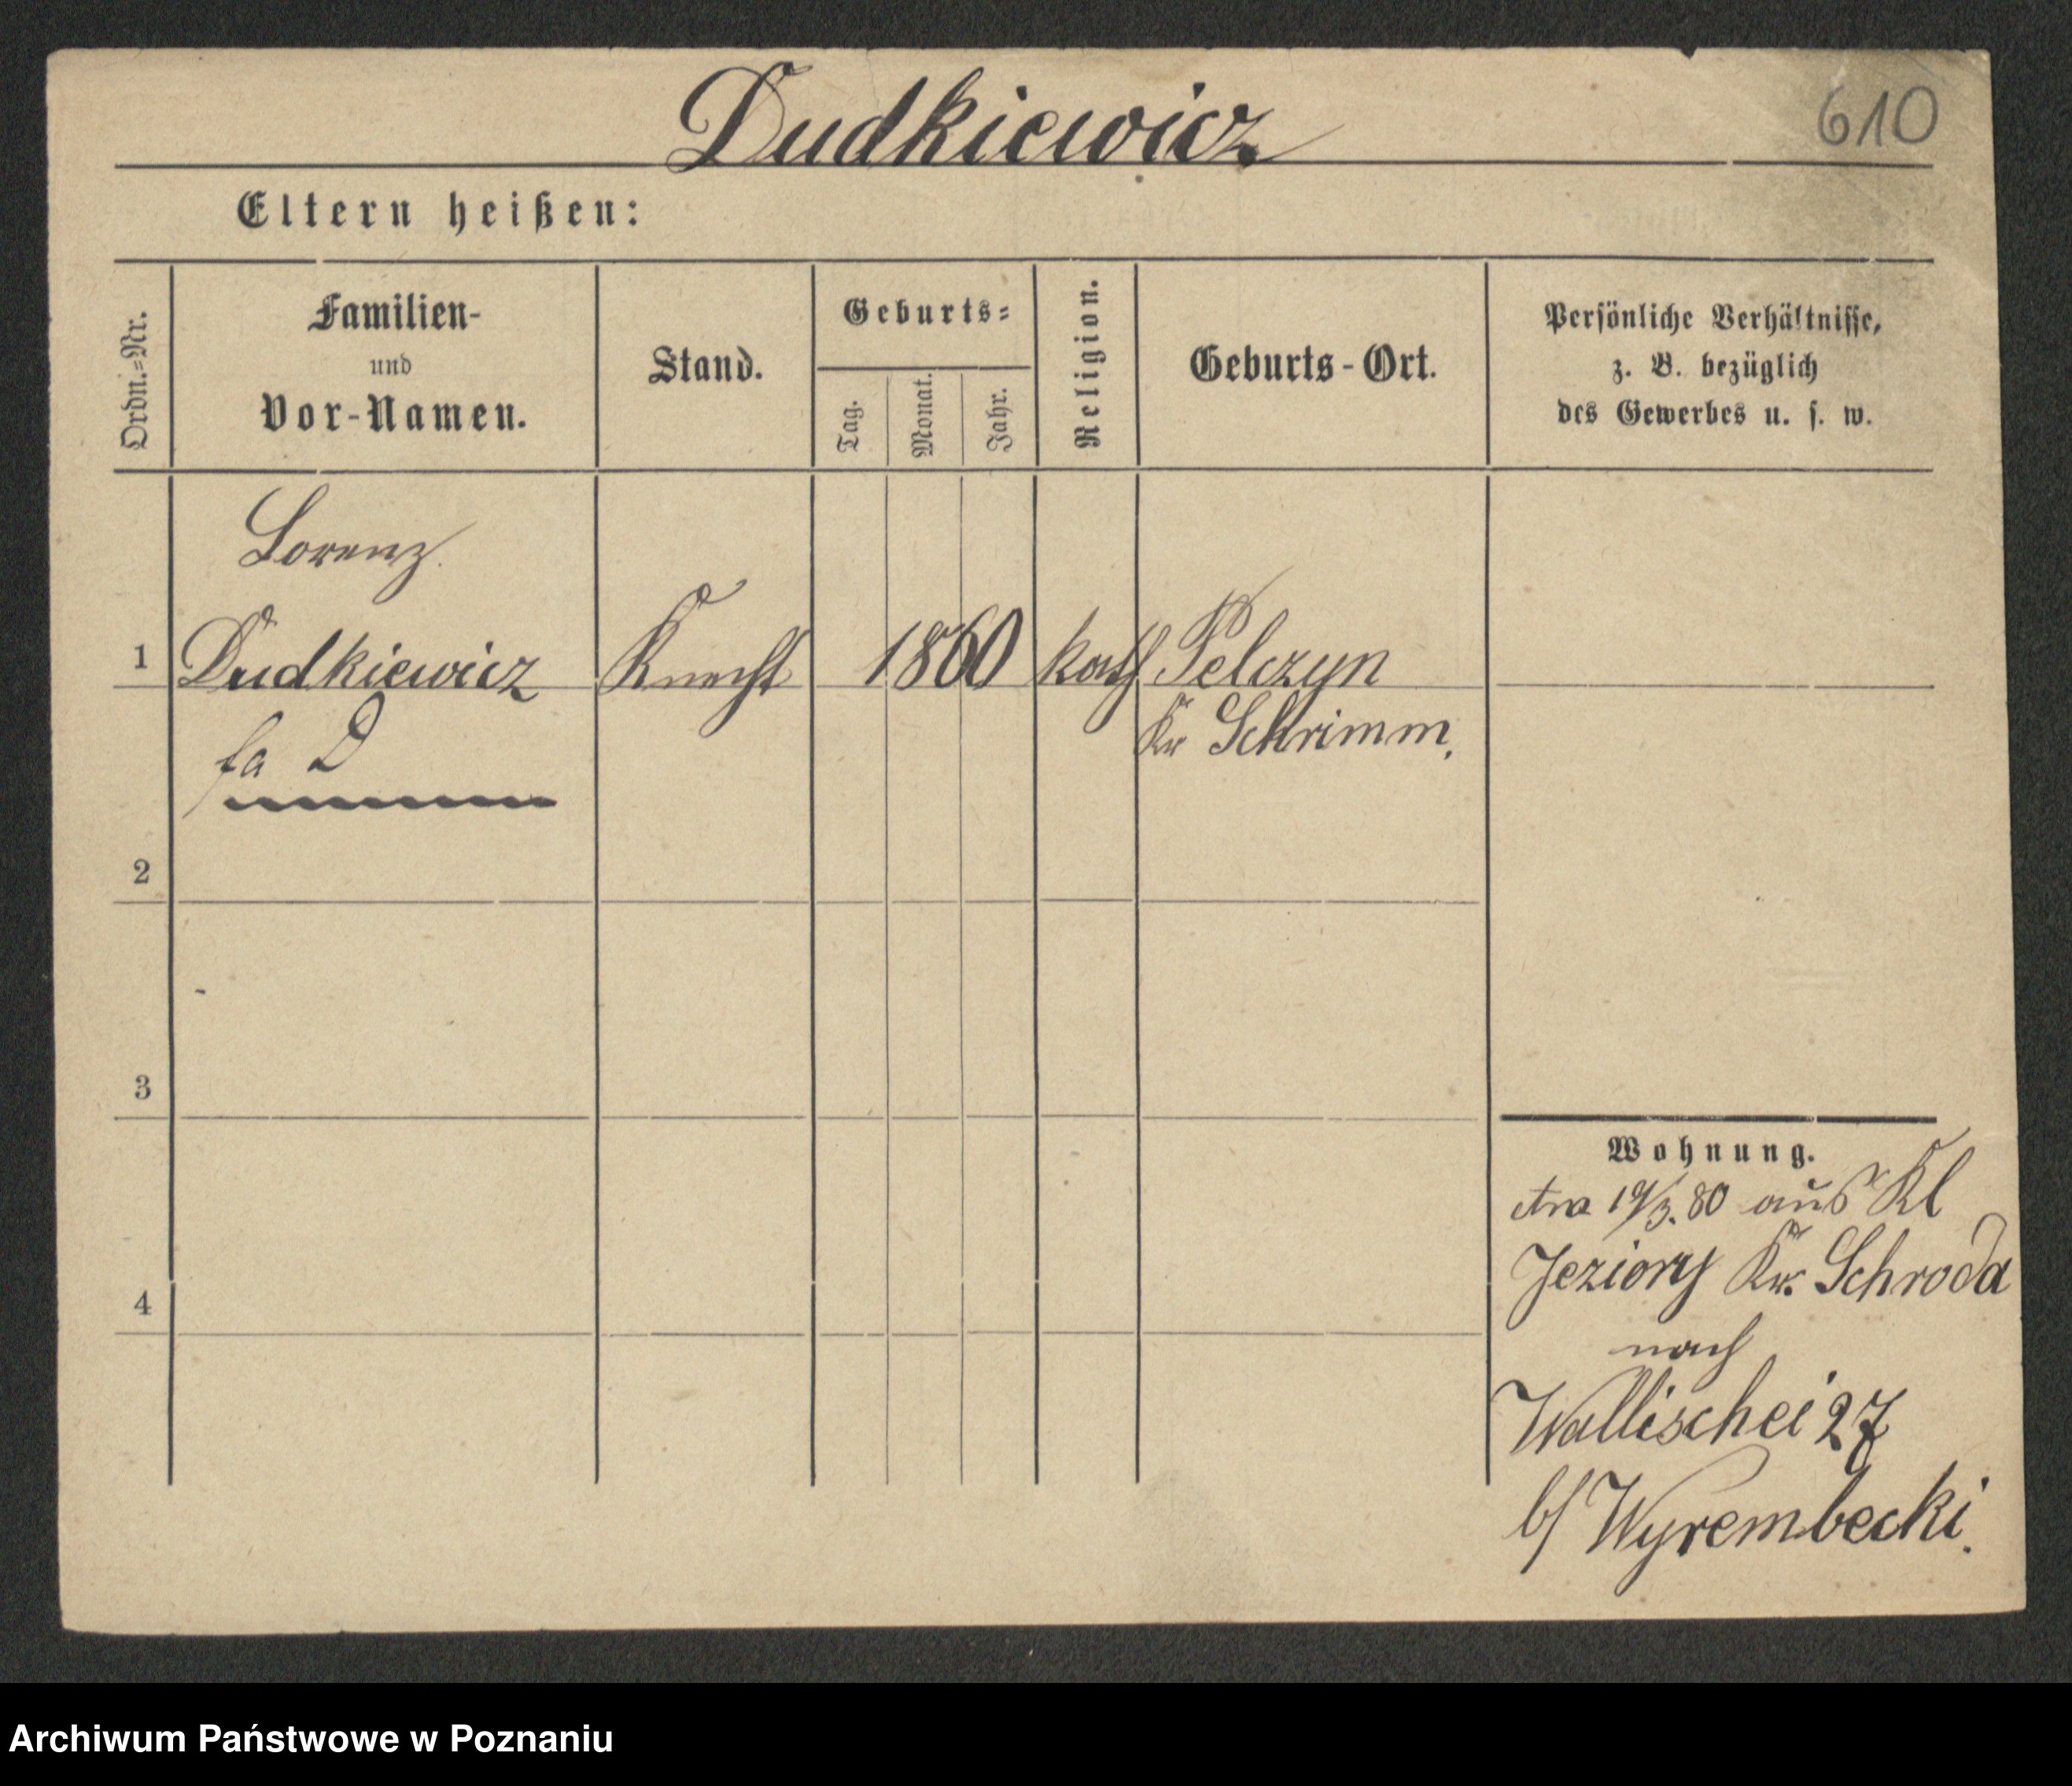 Dudkiewicz
610
Eltern heißen:
Ordn.=Nr.
Familien-
und
Vor-Namen.
Stand.
Geburts=
Tag.
Monat.
Jahr.
Religion.
Geburts-Ort.
Persönliche Verhältnisse,
z. B. bezüglich
des Gewerbes u. s. w.
Lorenz
1 Dudkiewicz Knecht 1860 kath Pelczyn
fa D
Kr Schrimm.
2
3
4
Wohnung.
19/3. 80 aus Kl
Jeziory Kr. Schroda
nach
Wallischei 27
b/ Wyrembecki.
Archiwum Państwowe w Poznaniu